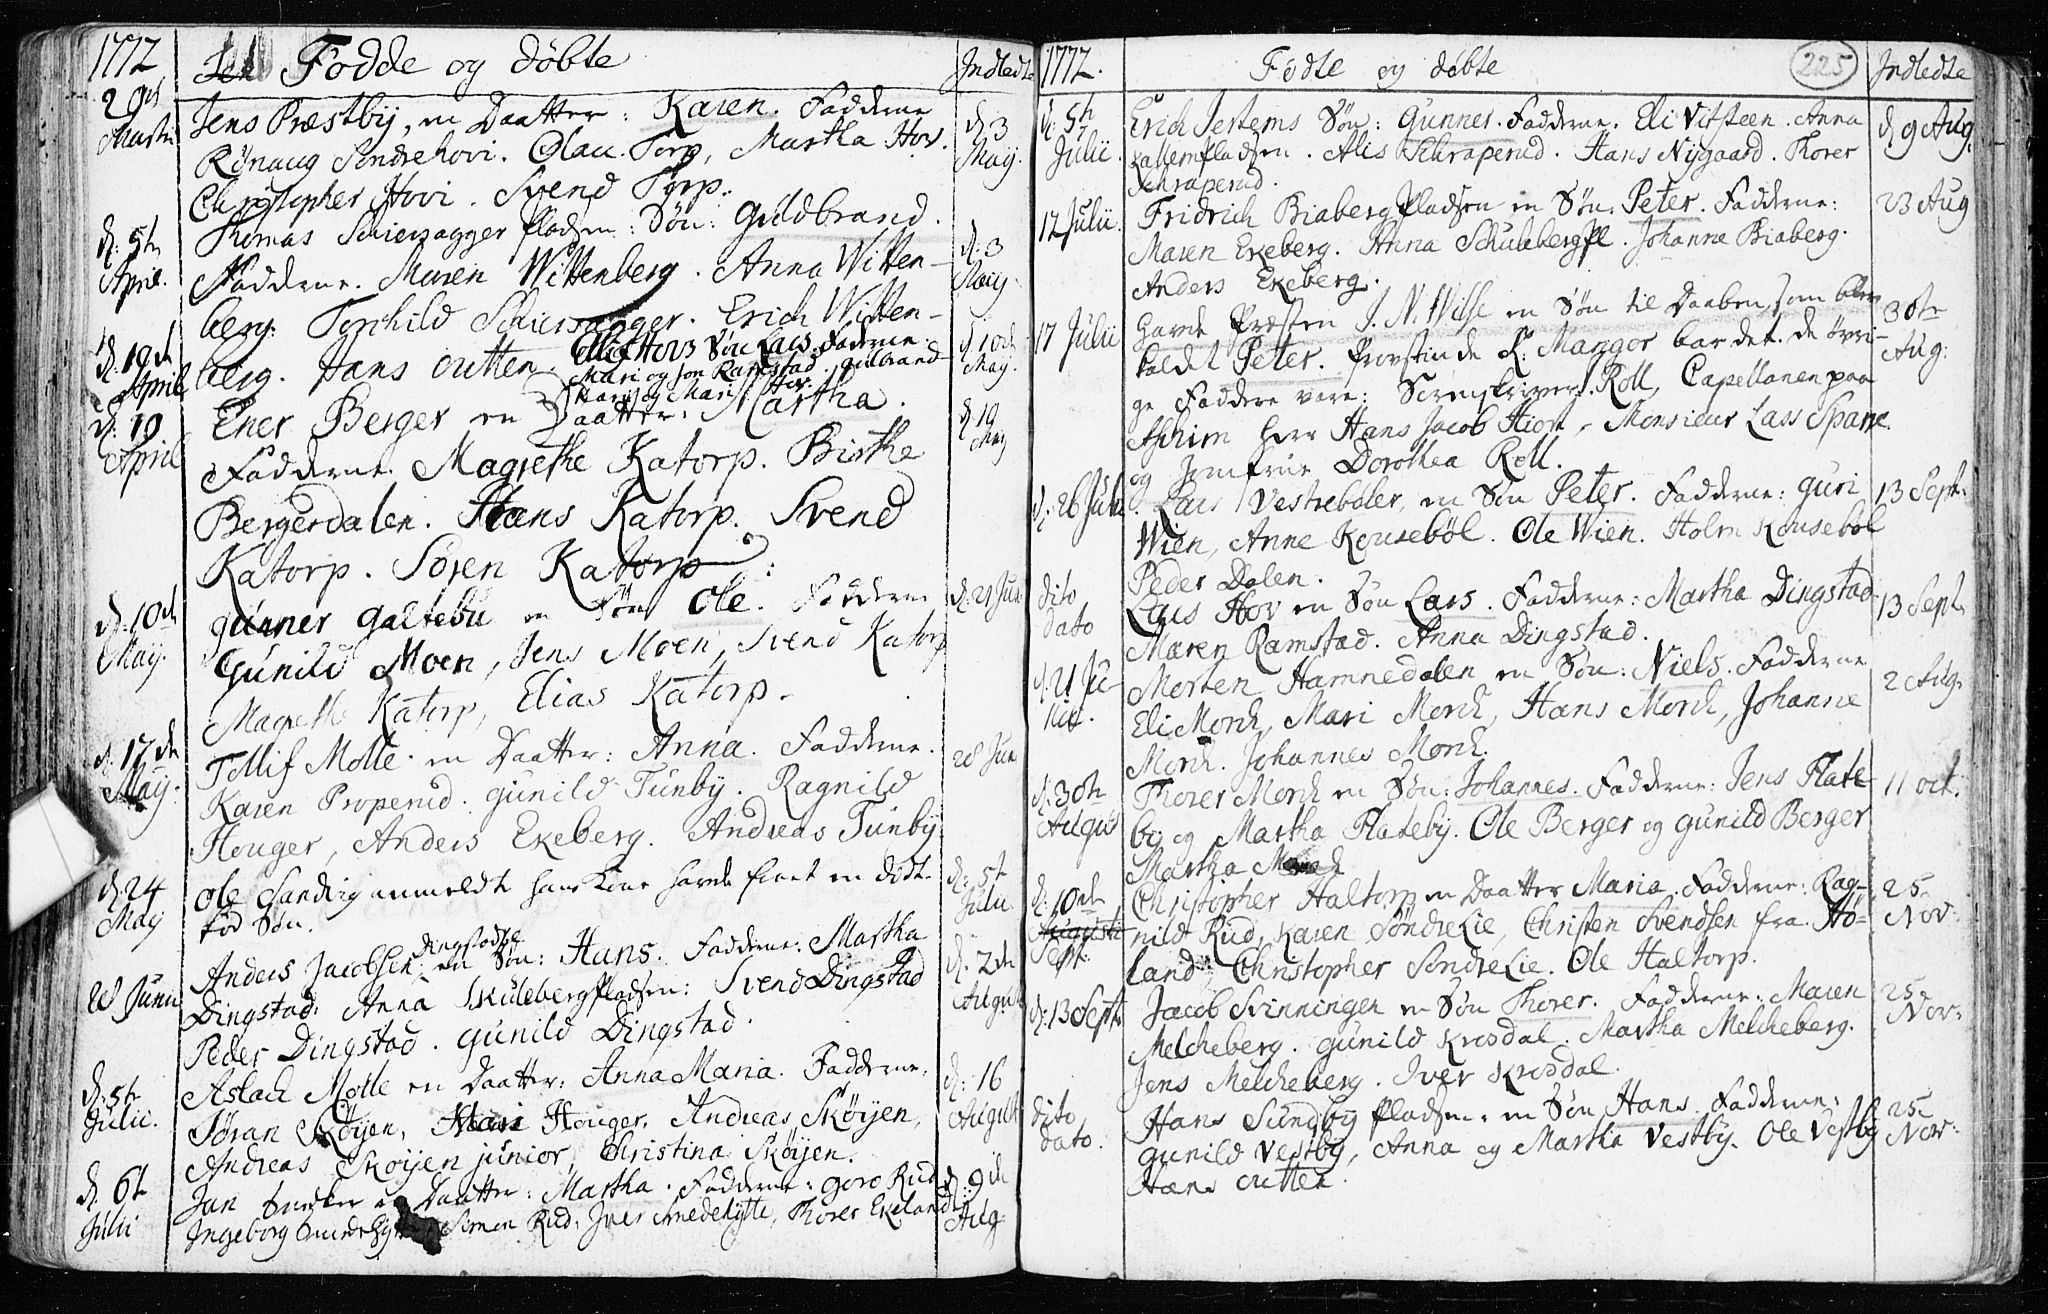 1772
Fødde og døbte
Indledte
29de Martii
Jens Præstby, en Daatter: Karen. Fadderne
Rønaug Sondrehovi. Olau Torp, Martha Hov.
Christopher Hovi. Svend Torp.
d: 3 Maij.
d: 5te April.
Thomas Schiersagger pladsen: Søn: Guldbrand.
Fadderne. Maren Wittenberg. Anna Witten-
berg. Torchild Schiersagger. Erich Witten-
berg. Hans Outten.
d: 3 Maij.
d: 12te April
Ellif Hovs Søn Lars. Fadderne
Mari og Jon Ramstad. Gulbrand
og Mari Hov.
d: 10de May.
d: 19 April
Ener Berger en Daatter: Martha.
Fadderne. Magrethe Katorp. Birthe
Bergerdalen. Hans Katorp. Svend
Katorp. Søren Katorp.
d: 19 May
d: 10de May.
Gunner Galtebu en Søn Ole. Fadderne
Gunild Moen, Jens Moen, Svend Katorp
Magrethe Katorp, Elias Katorp.
d: 21 Jun
d: 17de May.
Tellif Molle en Daatter: Anna. Fadderne.
Karen Properud. Gunild Tunby. Ragnild
Houger, Anders Ekeberg. Andreas Tunby
28 Jun
d: 24 May
Ole Sandvig anmeldte hans Kone havde fød en død-
fød Søn.
d: 5te Julii
28 Junii
Anders Jacobsen Dingstad en Søn: Hans. Fadderne: Martha
Dingstad: Anna Skulebergpladsen: Svend Dingstad
Peder Dingstad. Gunild Dingstad.
d: 2den August
d: 5te Julii.
Aslach Molle en Daatter: Anna Maria. Fadderne.
Jøran Skøijen, Mari Houger. Andreas Skøijen,
Andreas Skøijen junior, Christina Skøijen.
d: 16 August
d. 6te Julii
Jan en Daatter: Martha. Fadderne: Goro Rud
Ingeborg Simen Rud. Iver Smedehytte, Thorer Ekeland
d: 9de Aug
1772.
Fødte og døbte
225
Indledte
d: 5te Julii.
Erich Jertems Søn: Gunner. Fadderne. Eli Vitsteen. Anna
Kallempladsen. Alis Schraperud. Hans Nygaard. Thorer
Schraperud.
d. 9 Aug.
12 Julii.
Fridrich Biaberg Pladsen en Søn: Peter. Fadderne:
Maren Ekeberg. Anna Schulebergpl. Johanne Biaberg.
Anders Ekeberg.
23 Aug
17 Julii
Havde Præsten J. N. Wilse en Søn til Daaben, som blev
kaldet Peter. Provstinde L: Mangor bar det. de øvri-
ge Faddere vare: Sorenskriver Roll, Capellanen paa
Askim herr Hans Jacob Hiort, Monsieur Lars Sparre.
og Jomfrue Dorothea Roll.
30te Aug:
d: 26 Julii
Lars Vestrebøler, en Søn Peter. Fadderne: Guri
Wien, Anne Kousebøl. Ole Wien. Holm Kousebøl
Peder Dalen.
13 Sept.
dito dato
Lars Hov en Søn Lars. Fadderne: Martha Dingstad
Maren Ramstad. Anna Dingstad.
13 Sept.
d. 21 Julii.
Morten Hamnedalen en Søn: Niels. Fadderne
Eli Morch, Mari Morch, Hans Morch, Johanne
Morch. Johannes Morch.
2 Aug.
d. 30te August
Thorer Morch en Søn: Johannes. Fadderne: Jens Flate-
by og Martha Flateby. Ole Berger og Gunild Berger
Martha Morch
11 Oct.
d: 10de Augusti Sept:
Christopher Haltorp en Daatter Maria. Fadderne: Rag-
nild Rud, Karen Søndre Lie, Christen Svendsen fra Hø-
land: Christopher Sondre Lie. Ole Haltorp.
25 Nov.
d: 13 Sept.
Jacob Svinningen en Søn Thorer. Fadderne: Maren
Melcheberg. Gunild Krosdal. Martha Melcheberg.
Jens Melcheberg. Iver Krosdal.
25 Nov.
dito dato.
Hans Sundby Pladsen en Søn Hans. Fadderne:
Gunild Vestby, Anna og Martha Vestby. Ole Vestby
Hans Outten.
25 Nov.